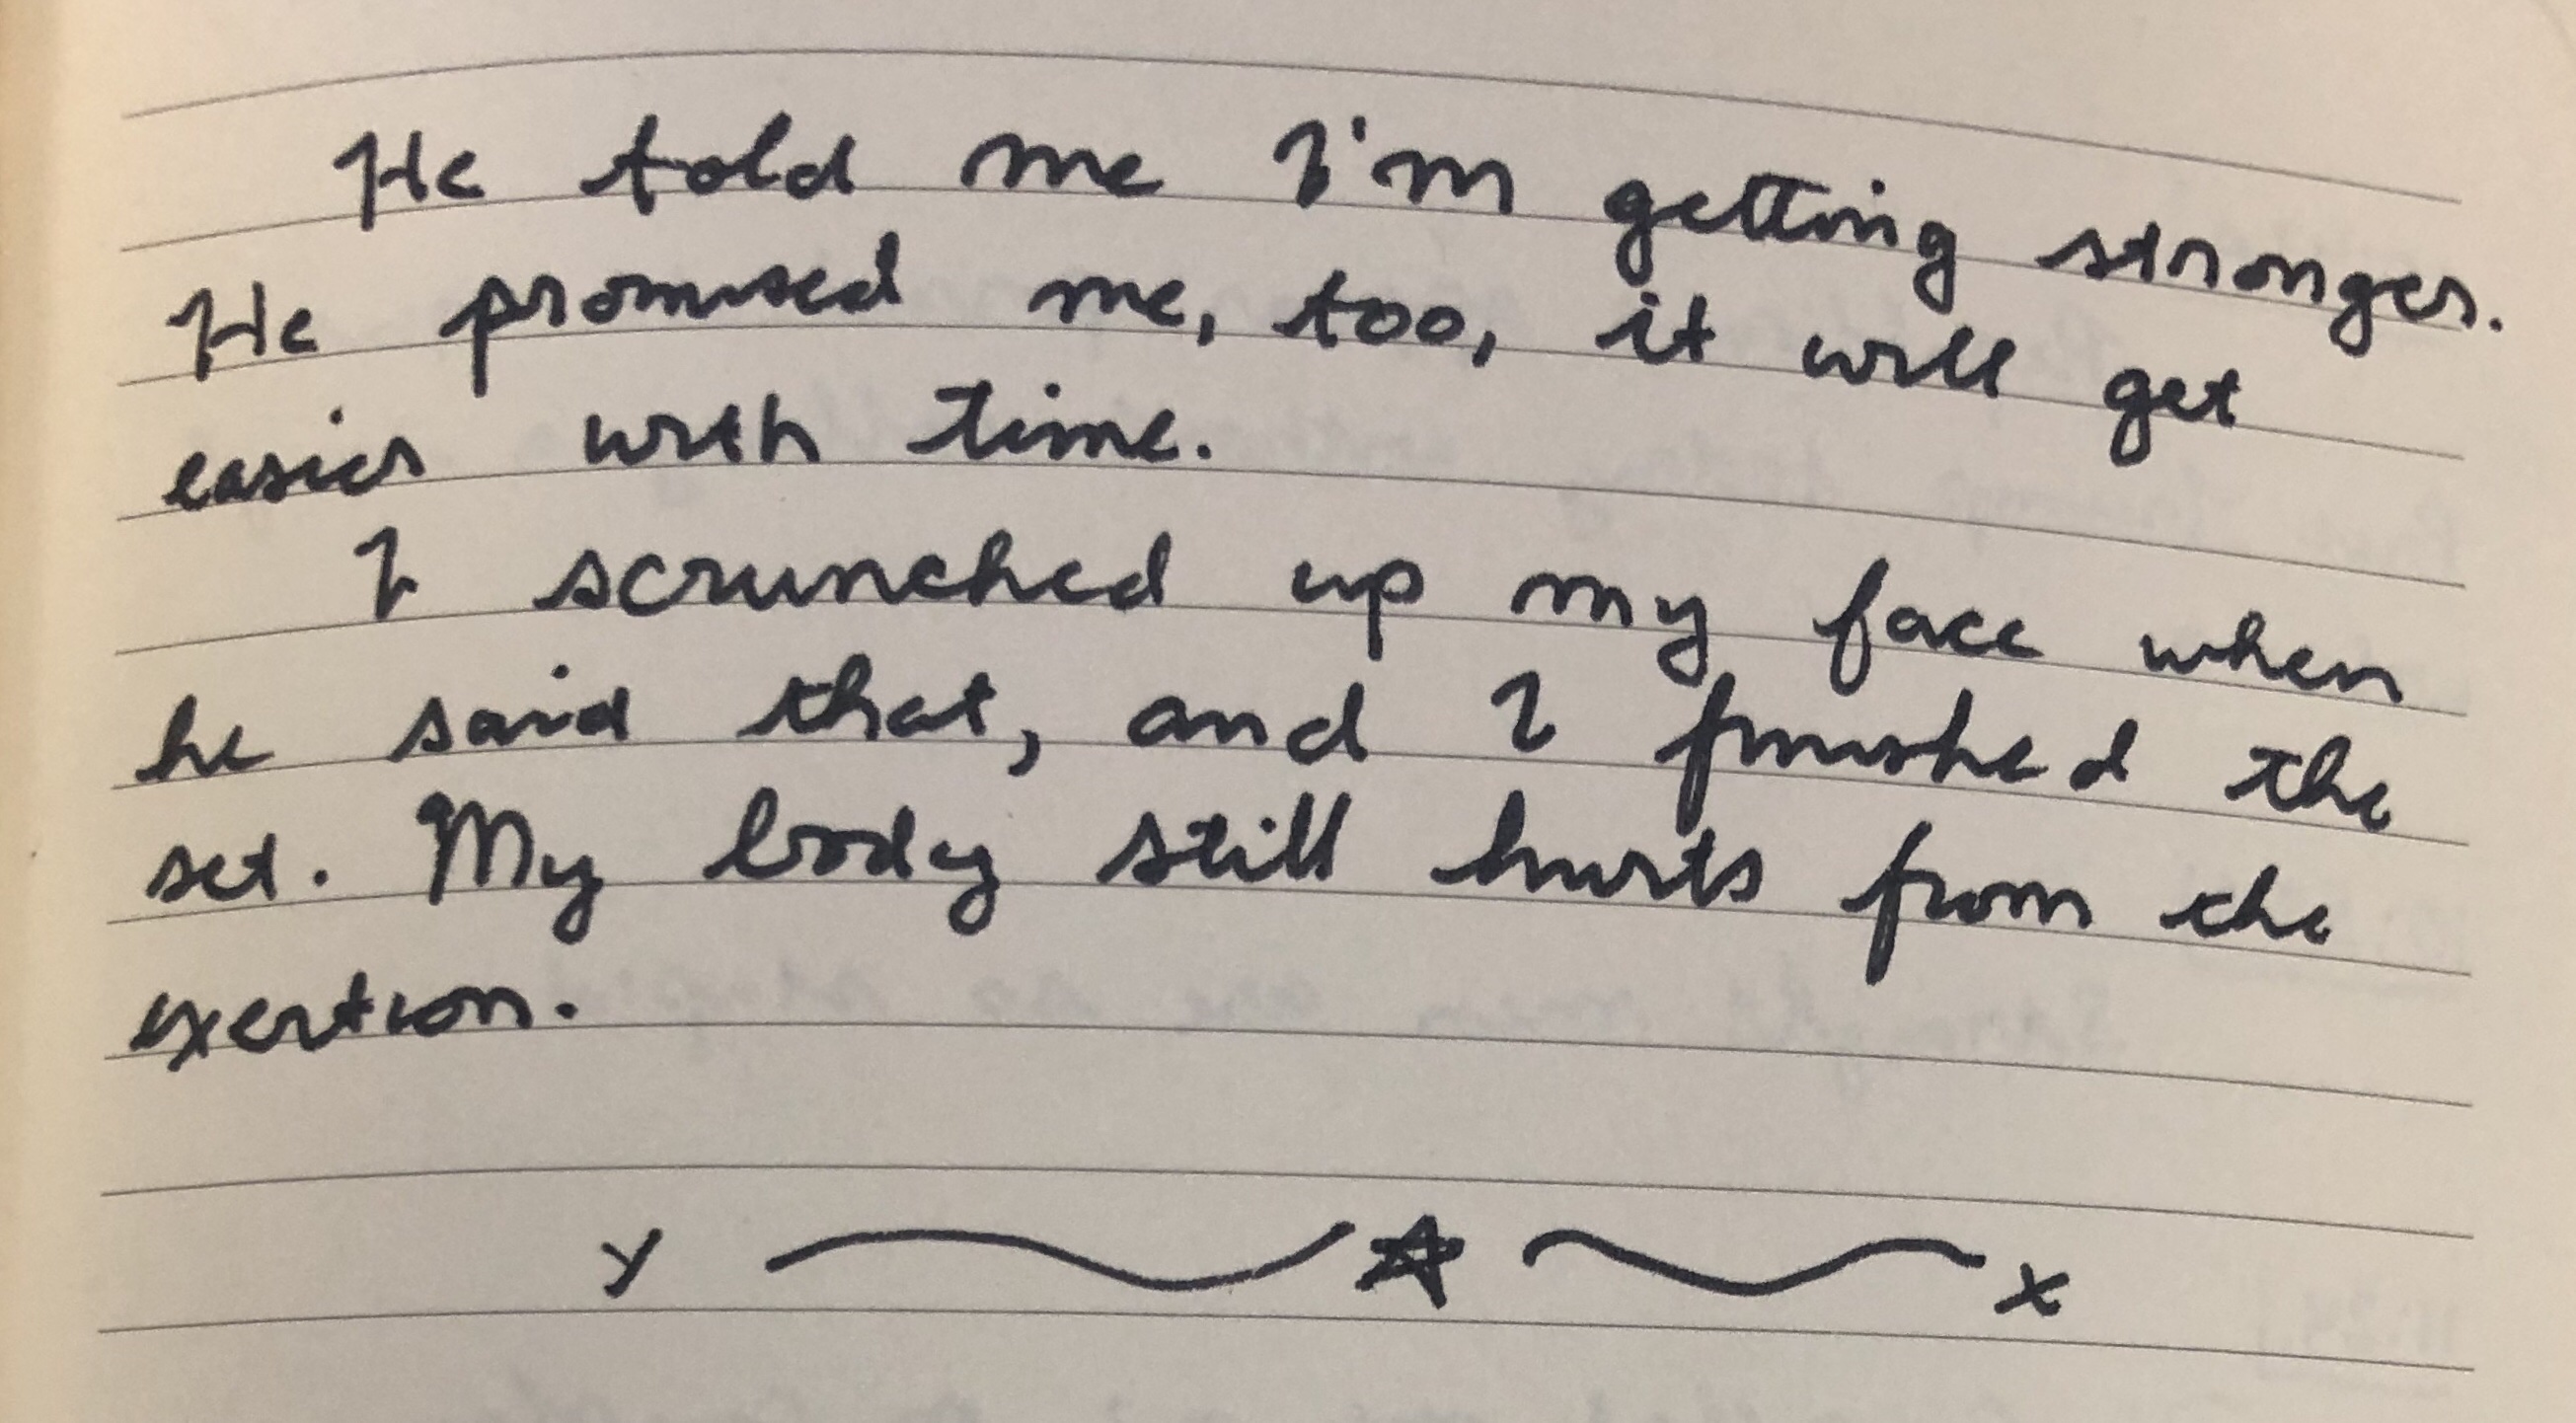 He told me I'm getting stronger.
He promised me, too, it will get
easier with time.
I scrunched up my face when
he said that, and I finished the
set. My body still hurts from the
exertion.
x x